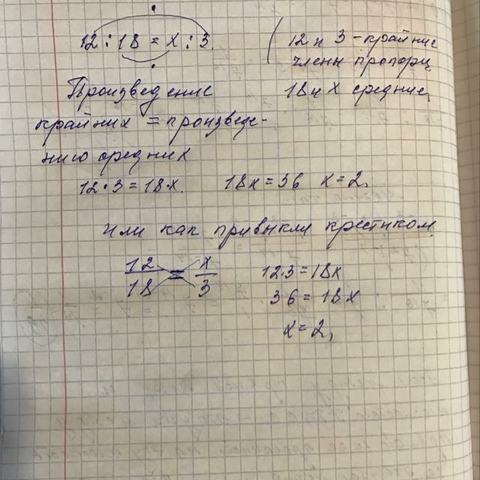 12 : 18 = x : 3.
12 и 3 - крайние
члены пропорц
18 и x средние
Произведение
крайних = произведе-
нию средних
12 · 3 = 18 · x.
18x = 36 x = 2,
Или как привыкли крестиком.
12/18 = x/3
12·3 = 18x
36 = 18x
x = 2,